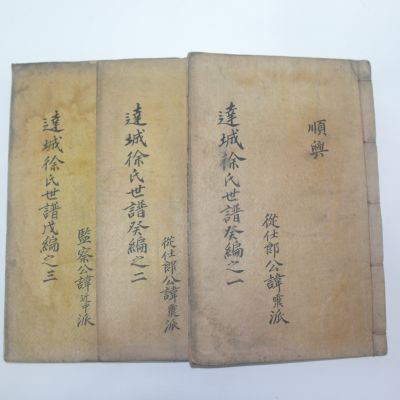 順興
達城徐氏世譜癸編之一
從仕郎公諱東派
達城徐氏世譜癸編之二
從仕郎公諱東派
達城徐氏世譜戊編之三
監察公諱近中派